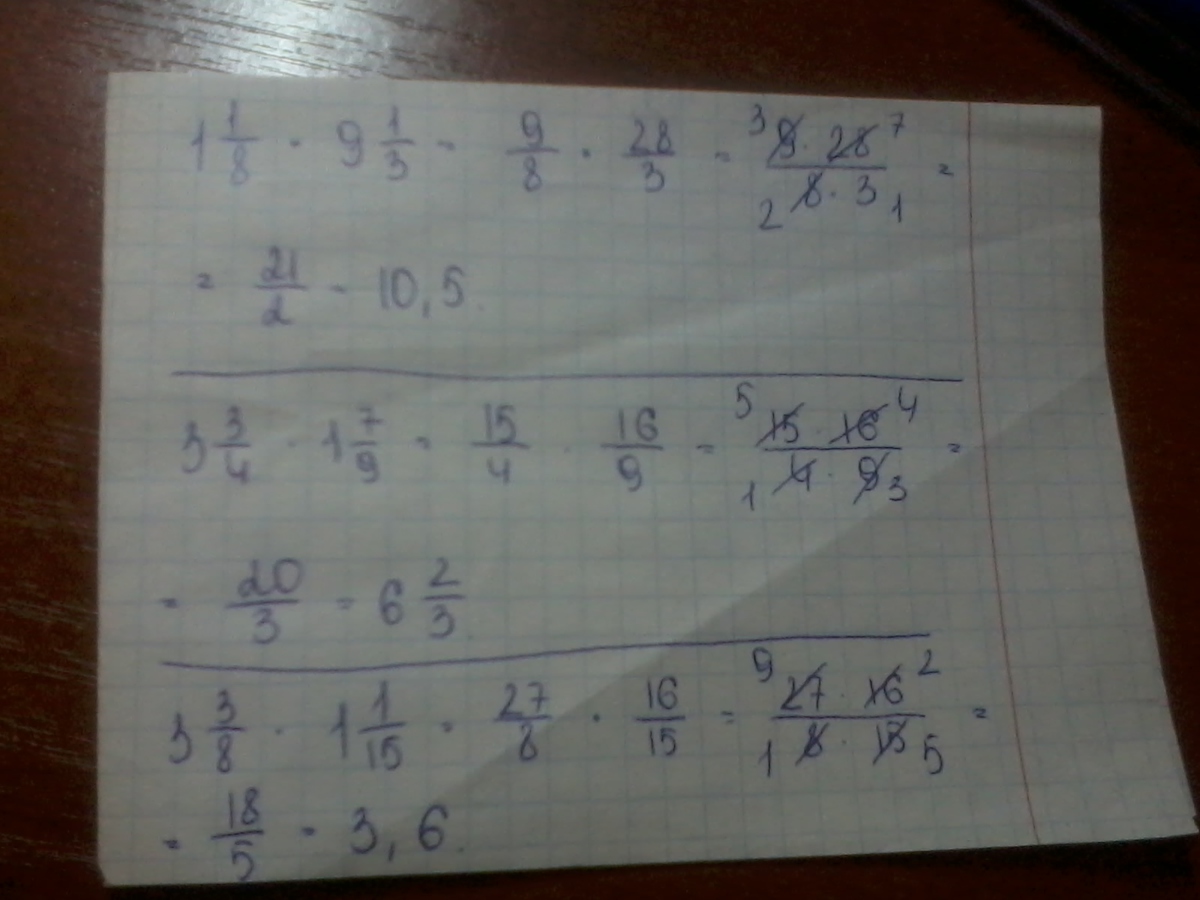 1 1/8 · 9 1/3 = 9/8 · 28/3 = 3 9 · 28 7 / 2 8 · 3 1 =
= 21/2 = 10,5.
3 3/4 · 1 7/9 = 15/4 · 16/9 = 5 15 · 16 4 / 1 4 · 9 3 =
= 20/3 = 6 2/3.
3 3/8 · 1 1/15 = 27/8 · 16/15 = 9 27 · 16 2 / 1 8 · 15 5 =
= 18/5 = 3,6.